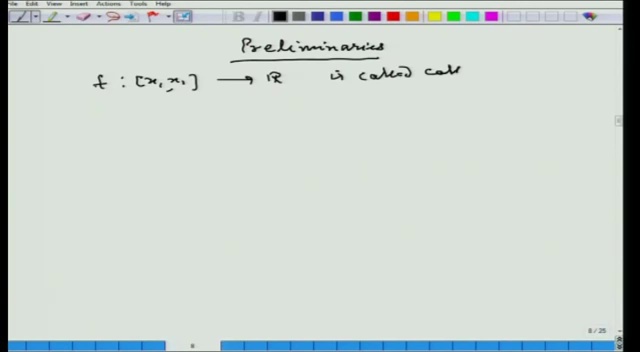 File Edit View Insert Actions Tools Help
Preliminaries
f : [x₁ x₁] → ℝ is called
8 / 25
8